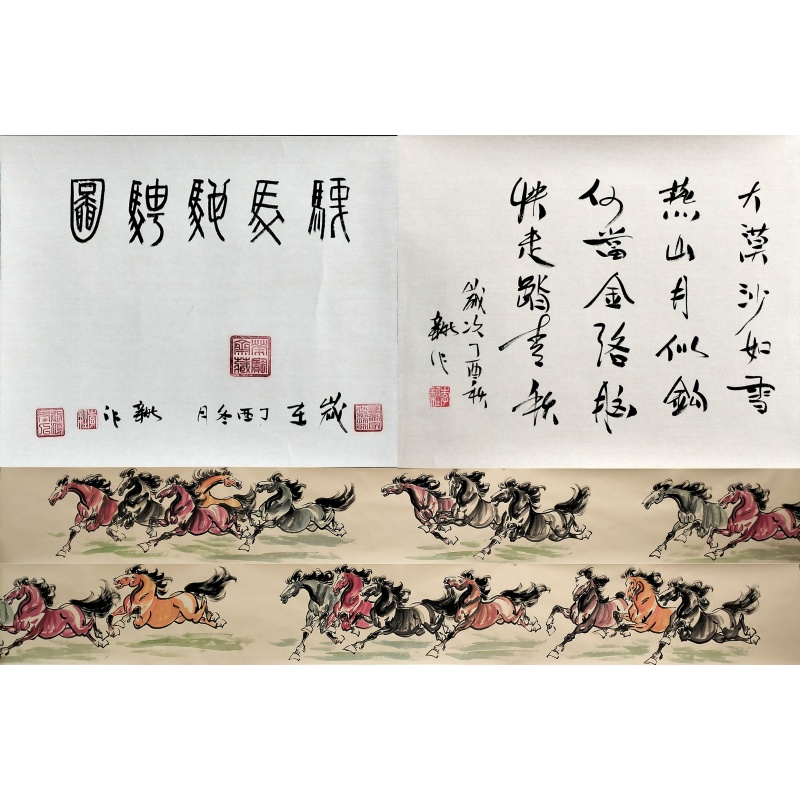 駿馬馳騁圖
歲在丁酉冬月 作
大漠沙如雪
燕山月似鈎
何當金絡腦
快走踏青秋
歲次丁酉秋
作